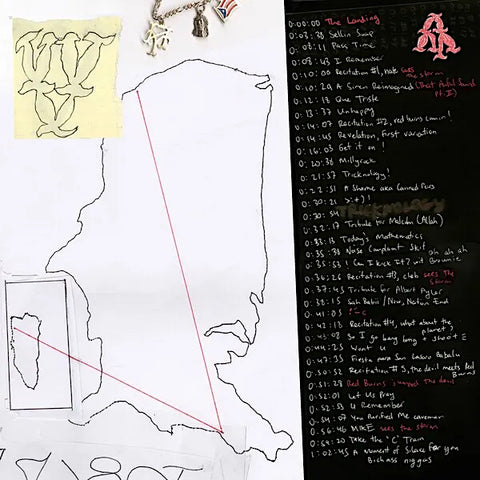 0:00:00 The Landing
0:03:38 Sellin Soap
0:08:11 Pass Time
0:08:43 I Remember
0:10:00 Recitation #1, nate sees the storm
0:10:29 A Siren Reimagined (That Awful Sound Pt. II)
0:12:13 Que Triste
0:13:37 Unhappy
0:14:07 Recitation #2, red burns
0:14:45 Revelation, First variation
0:16:03 Get it on!
0:20:36 Millyrock
0:21:57 Tricknology!
0:22:51 A Shame aka Canned
0:30:21 >:+)!
0:30:54 TRICKNOLOGY
0:32:17 Tribute for Malcolm (Allah)
0:33:13 Today's Mathematics
0:35:38 Noise Complaint Skit
0:35:53 I Can I Kick It? wit Brownie oh ah ah
0:36:25 Recitation #3, cleb sees The Storm
0:37:45 Tribute for Albert Ayler
0:38:15 Sah Babii / Nino, Nation End
0:41:05
0:42:13 Recitation #4, what about the planet?
0:43:08 So I go bang bong + shoot
0:44:25 Want u
0:47:35 Fiesta para San Lazaro Babalu
0:50:52 Recitation #5, the devil meets Red Burns
0:51:28 Red Burns the devil
0:52:01 Let Us Pray
0:52:53 U Remember
0:54:07 You Purified Me caveman
0:56:46 MIKE sees the storm
0:59:20 Take the "C" Train
1:02:45 A Moment of Silence for yon Bichass niggas